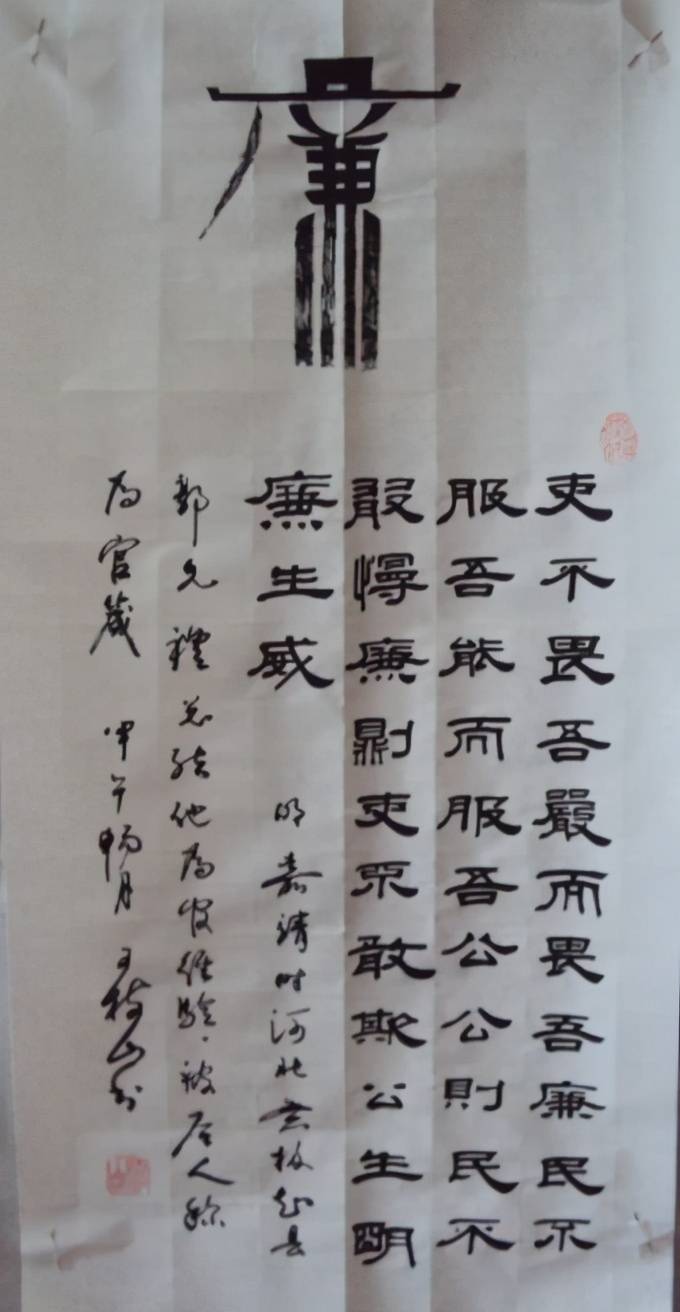 廉
吏不畏吾嚴而畏吾廉民不
服吾能而服吾公公則民不
敢慢廉則吏不敢欺公生明
廉生威 明嘉靖时河北无极知县
郭允禮总结他為官经驗、被后人称
為官箴 甲午暢月 王山书